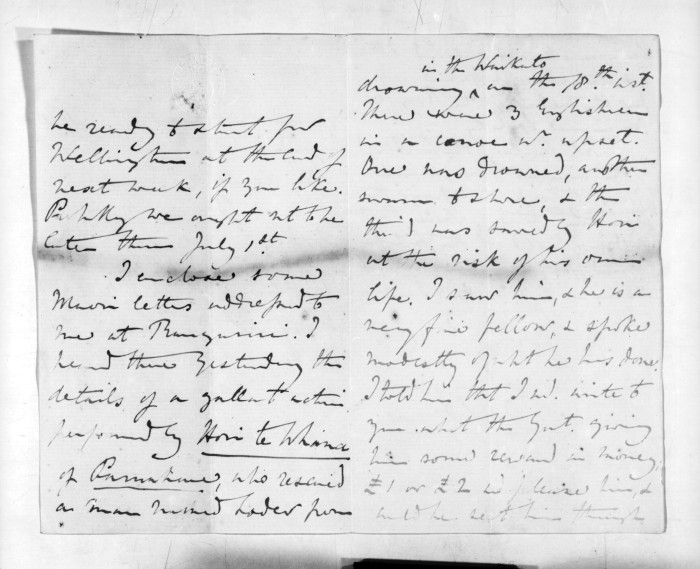 be ready to start for
Wellington at the end of
next week, if you like.
Probably we ought not to be
later than July 1st.
I enclose some
Maori letters addressed to
me at Rangiriri. I
heard there yesterday the
details of a gallant action
performed by Hori te Whana
of Paruakane, who rescued
a man named Loder from
in the Waikato
drowning ^ on the 18th inst.
There were 3 Englishmen
in a canoe wh. upset.
One was drowned, another
swam to shore, & the
third was saved by Hori
at the risk of his own
life. I saw him, & he is a
very fine fellow, & spoke
modestly of what he has done.
I told him that I wd. write to
you about the Govt. giving
him some reward in money.
£1 or £2 wd. please him, &
could be sent him through